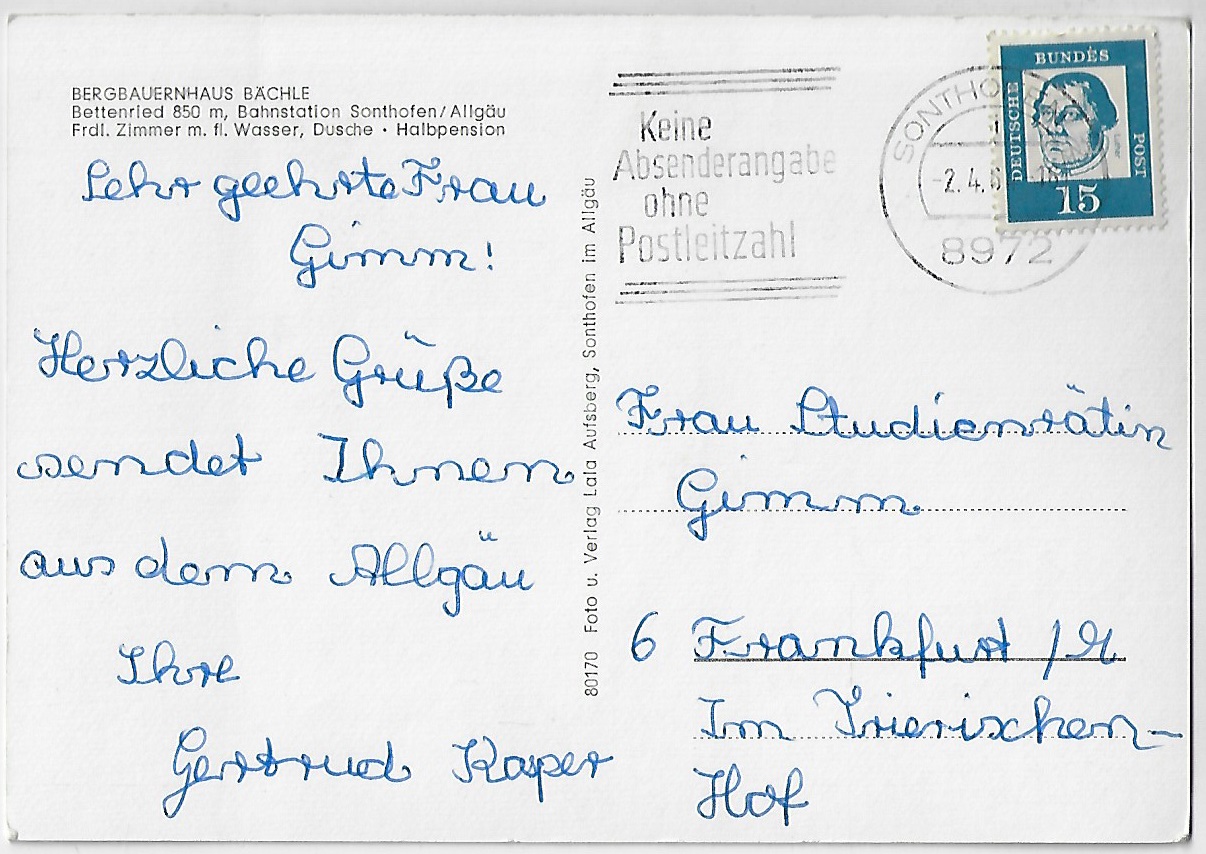 BERGBAUERNHAUS BÄCHLE
Bettenried 850 m, Bahnstation Sonthofen/Allgäu
Frdl. Zimmer m. fl. Wasser, Dusche · Halbpension
Sehr geehrte Frau
Gimm!
Herzliche Grüße
sendet Ihnen
aus dem Allgäu
Ihre
Gertrud Kasper
80170 Foto u. Verlag Lala Aufsberg, Sonthofen im Allgäu
Keine
Absenderangabe
ohne
Postleitzahl
SONTHOFEN
-2.4.6
8972
DEUTSCHE
BUNDES
POST
15
Frau Studienrätin
Gimm
6 Frankfurt /M
Im Trierischen-
Hof